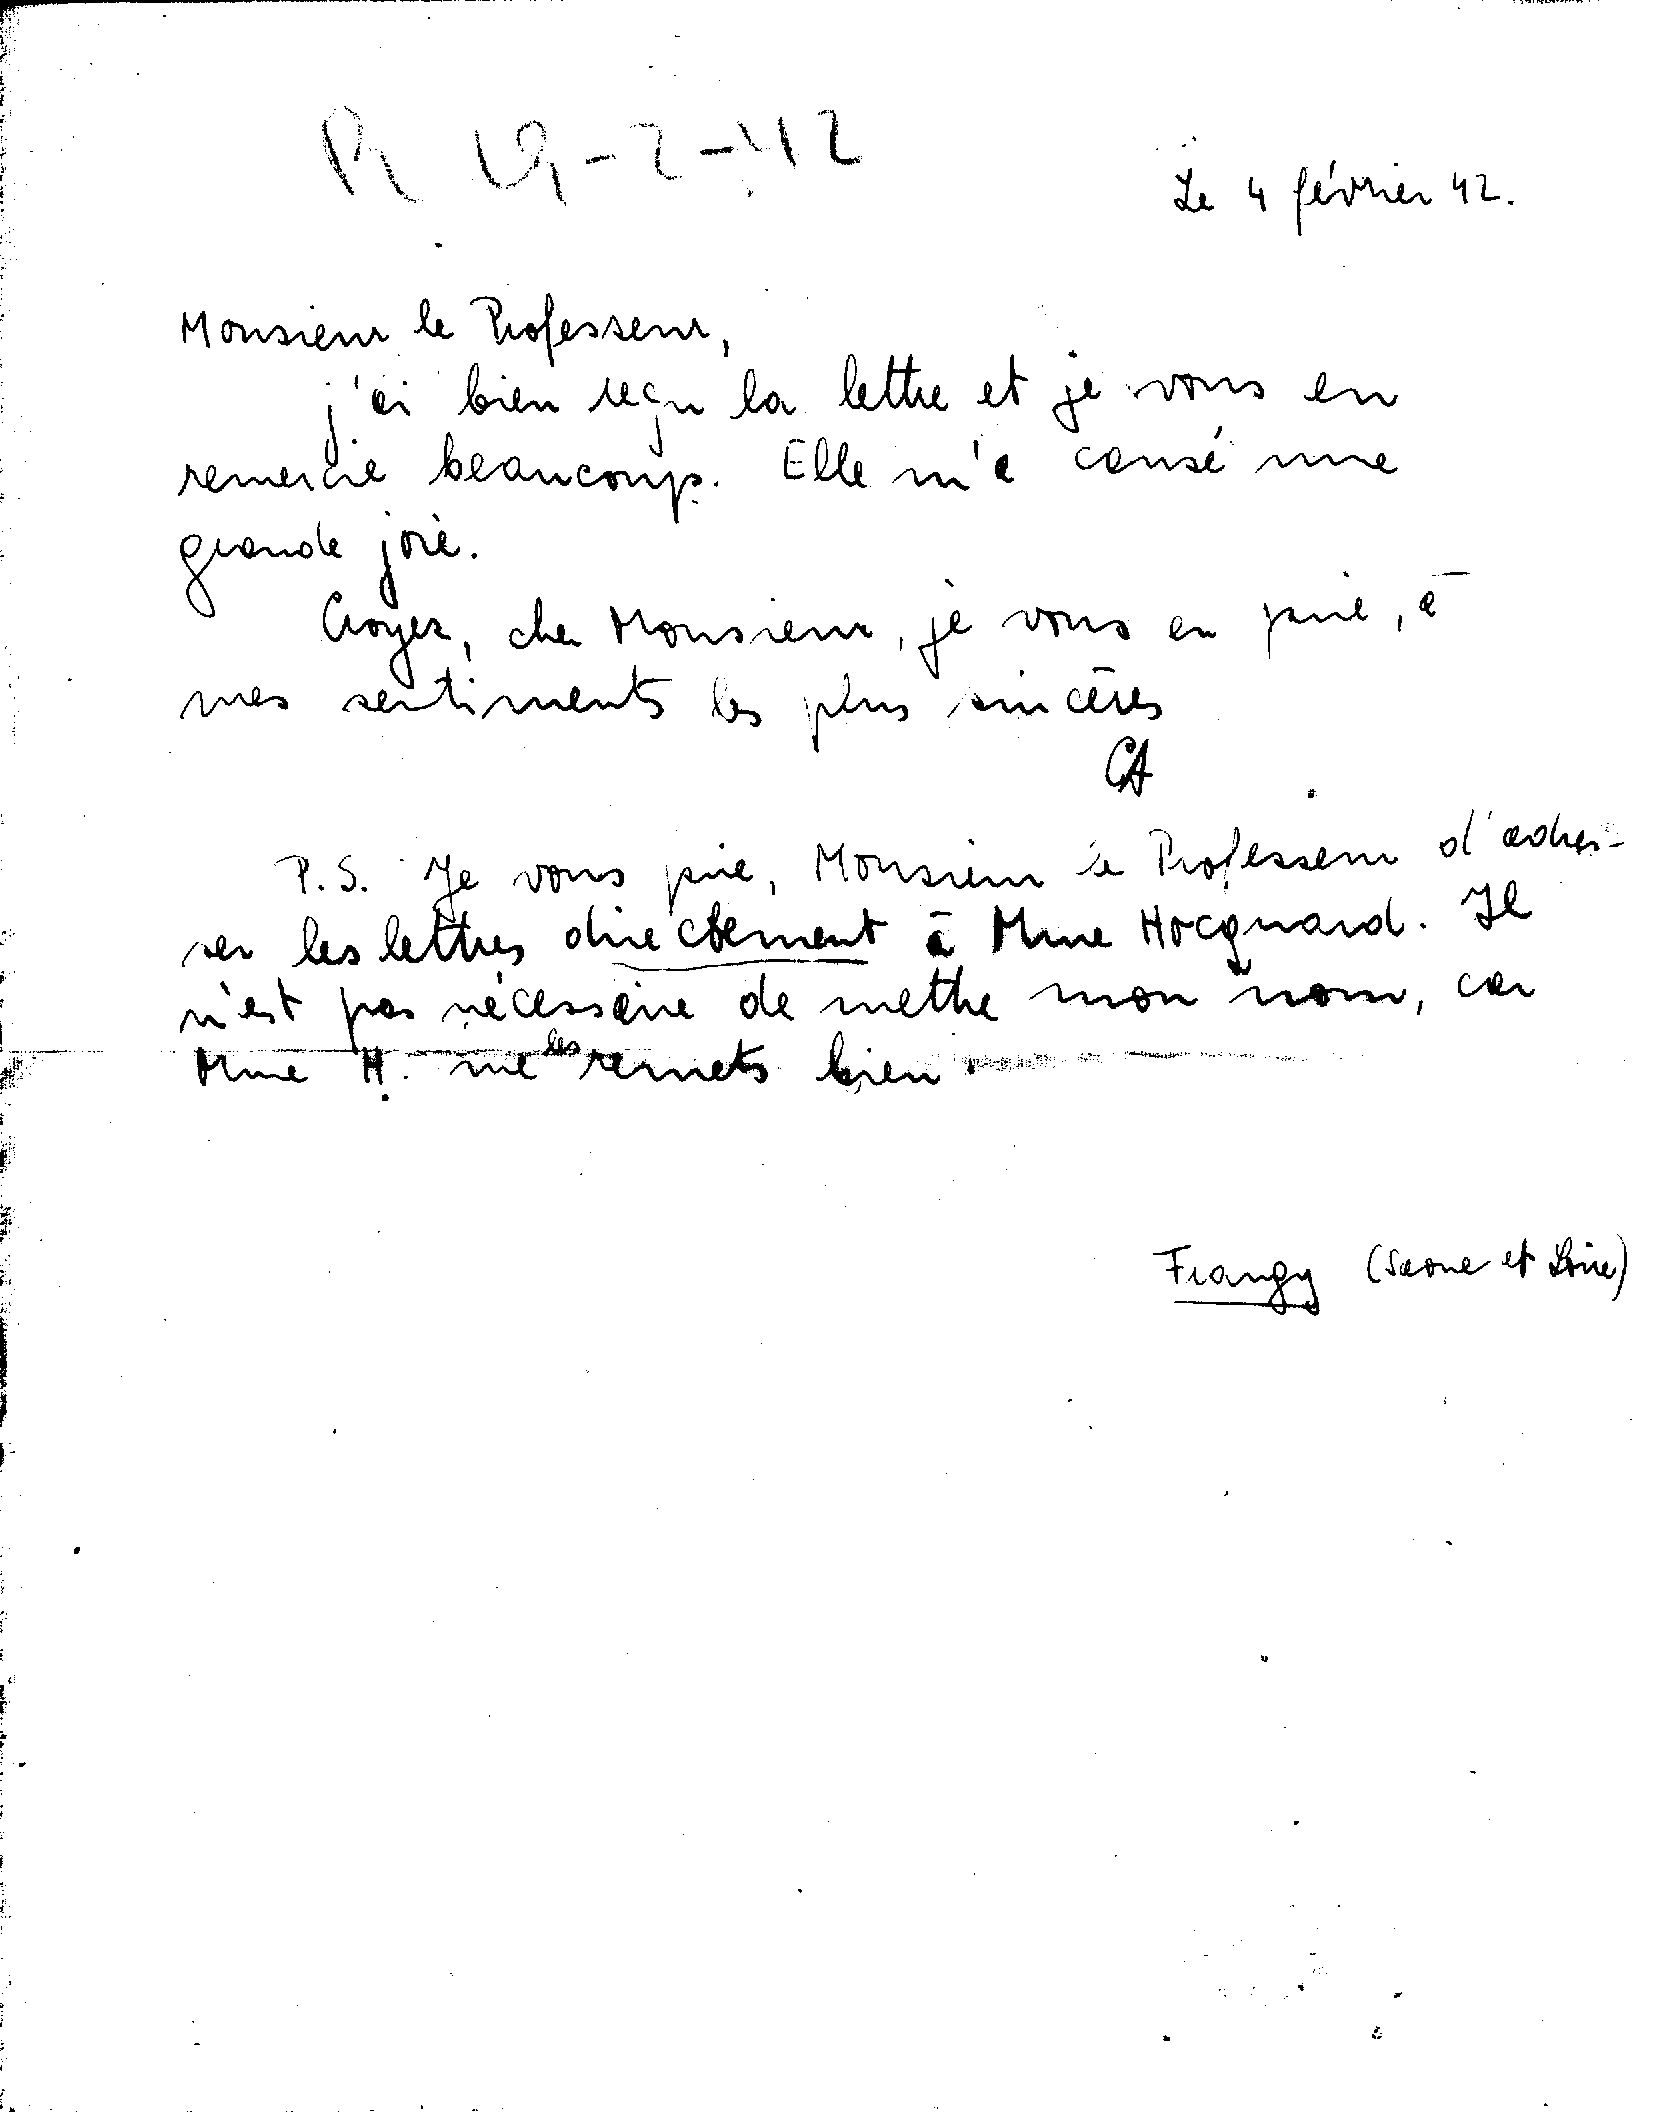 R 19-2-42
Le 4 février 42.
Monsieur le Professeur,
j'ai bien reçu la lettre et je vous en
remercie beaucoup. Elle m'a causé une
grande joie.
Croyez, cher Monsieur, je vous en prie, à
mes sentiments les plus sincères
CA
P.S. Je vous prie, Monsieur le Professeur d'adres-
ser les lettres directement à Mme Hocquard. Il
n'est pas nécessaire de mettre mon nom, car
Mme H. me les remets bien.
Frangy (Saone et Loire)